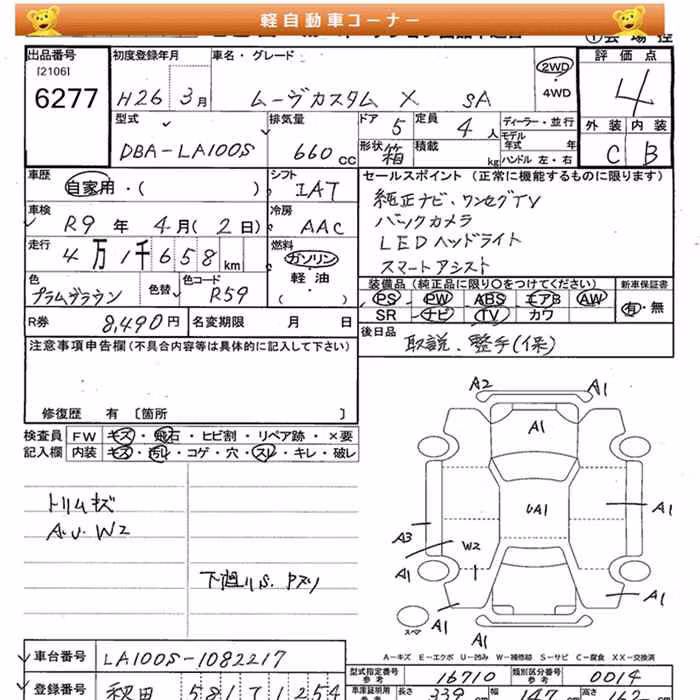 軽自動車コーナー
出品番号
[2106]
6277
初度登録年月
H26 3月
車名・グレード
ムーヴカスタム X SA
2WD
4WD
評価点
4
外装 内装
C B
型式
DBA-LA100S
排気量
660cc
ドア 5
定員 4人
形状 箱
積載 kg
ディーラー・並行
モデル年式 年
ハンドル 左・右
車歴
自家用・( )
シフト
IAT
車検
R9年4月(2日)
冷房
AAC
走行
4万1千658km
燃料
ガソリン
軽油
( )
色
プラムブラウン
色替
色コード
R59
R券
8,490円
名変期限 月 日
セールスポイント(正常に機能するものに限ります)
純正ナビ、ワンセグTV
バックカメラ
LEDヘッドライト
スマートアシスト
装備品(純正品に限り○をつけてください)
PS PW ABS エアB AW
SR ナビ TV カワ
新車保証書
有・無
後日品
取説、整手(保)
注意事項申告欄(不具合内容等は具体的に記入して下さい)
修復歴 有 〔箇所 〕
検査員記入欄
FW キズ・飛石・ヒビ割・リペア跡・×要
内装 キズ・汚レ・コゲ・穴・スレ・キレ・破レ
トリムキズ
A.U.W2
下廻りS.
A2
A1
A1
UA1
A1
A3
W2
A1
A1
A1
A1
スペア
A－キズ E－エクボ U－凹み W－補修跡 S－サビ C－腐食 XX－交換済
車台番号
LA100S-1082217
型式指定番号
参考
16710
類別区分番号
参考
0014
登録番号
秋田 581 1254
車庫証明用
長さ 339
147
高さ
162